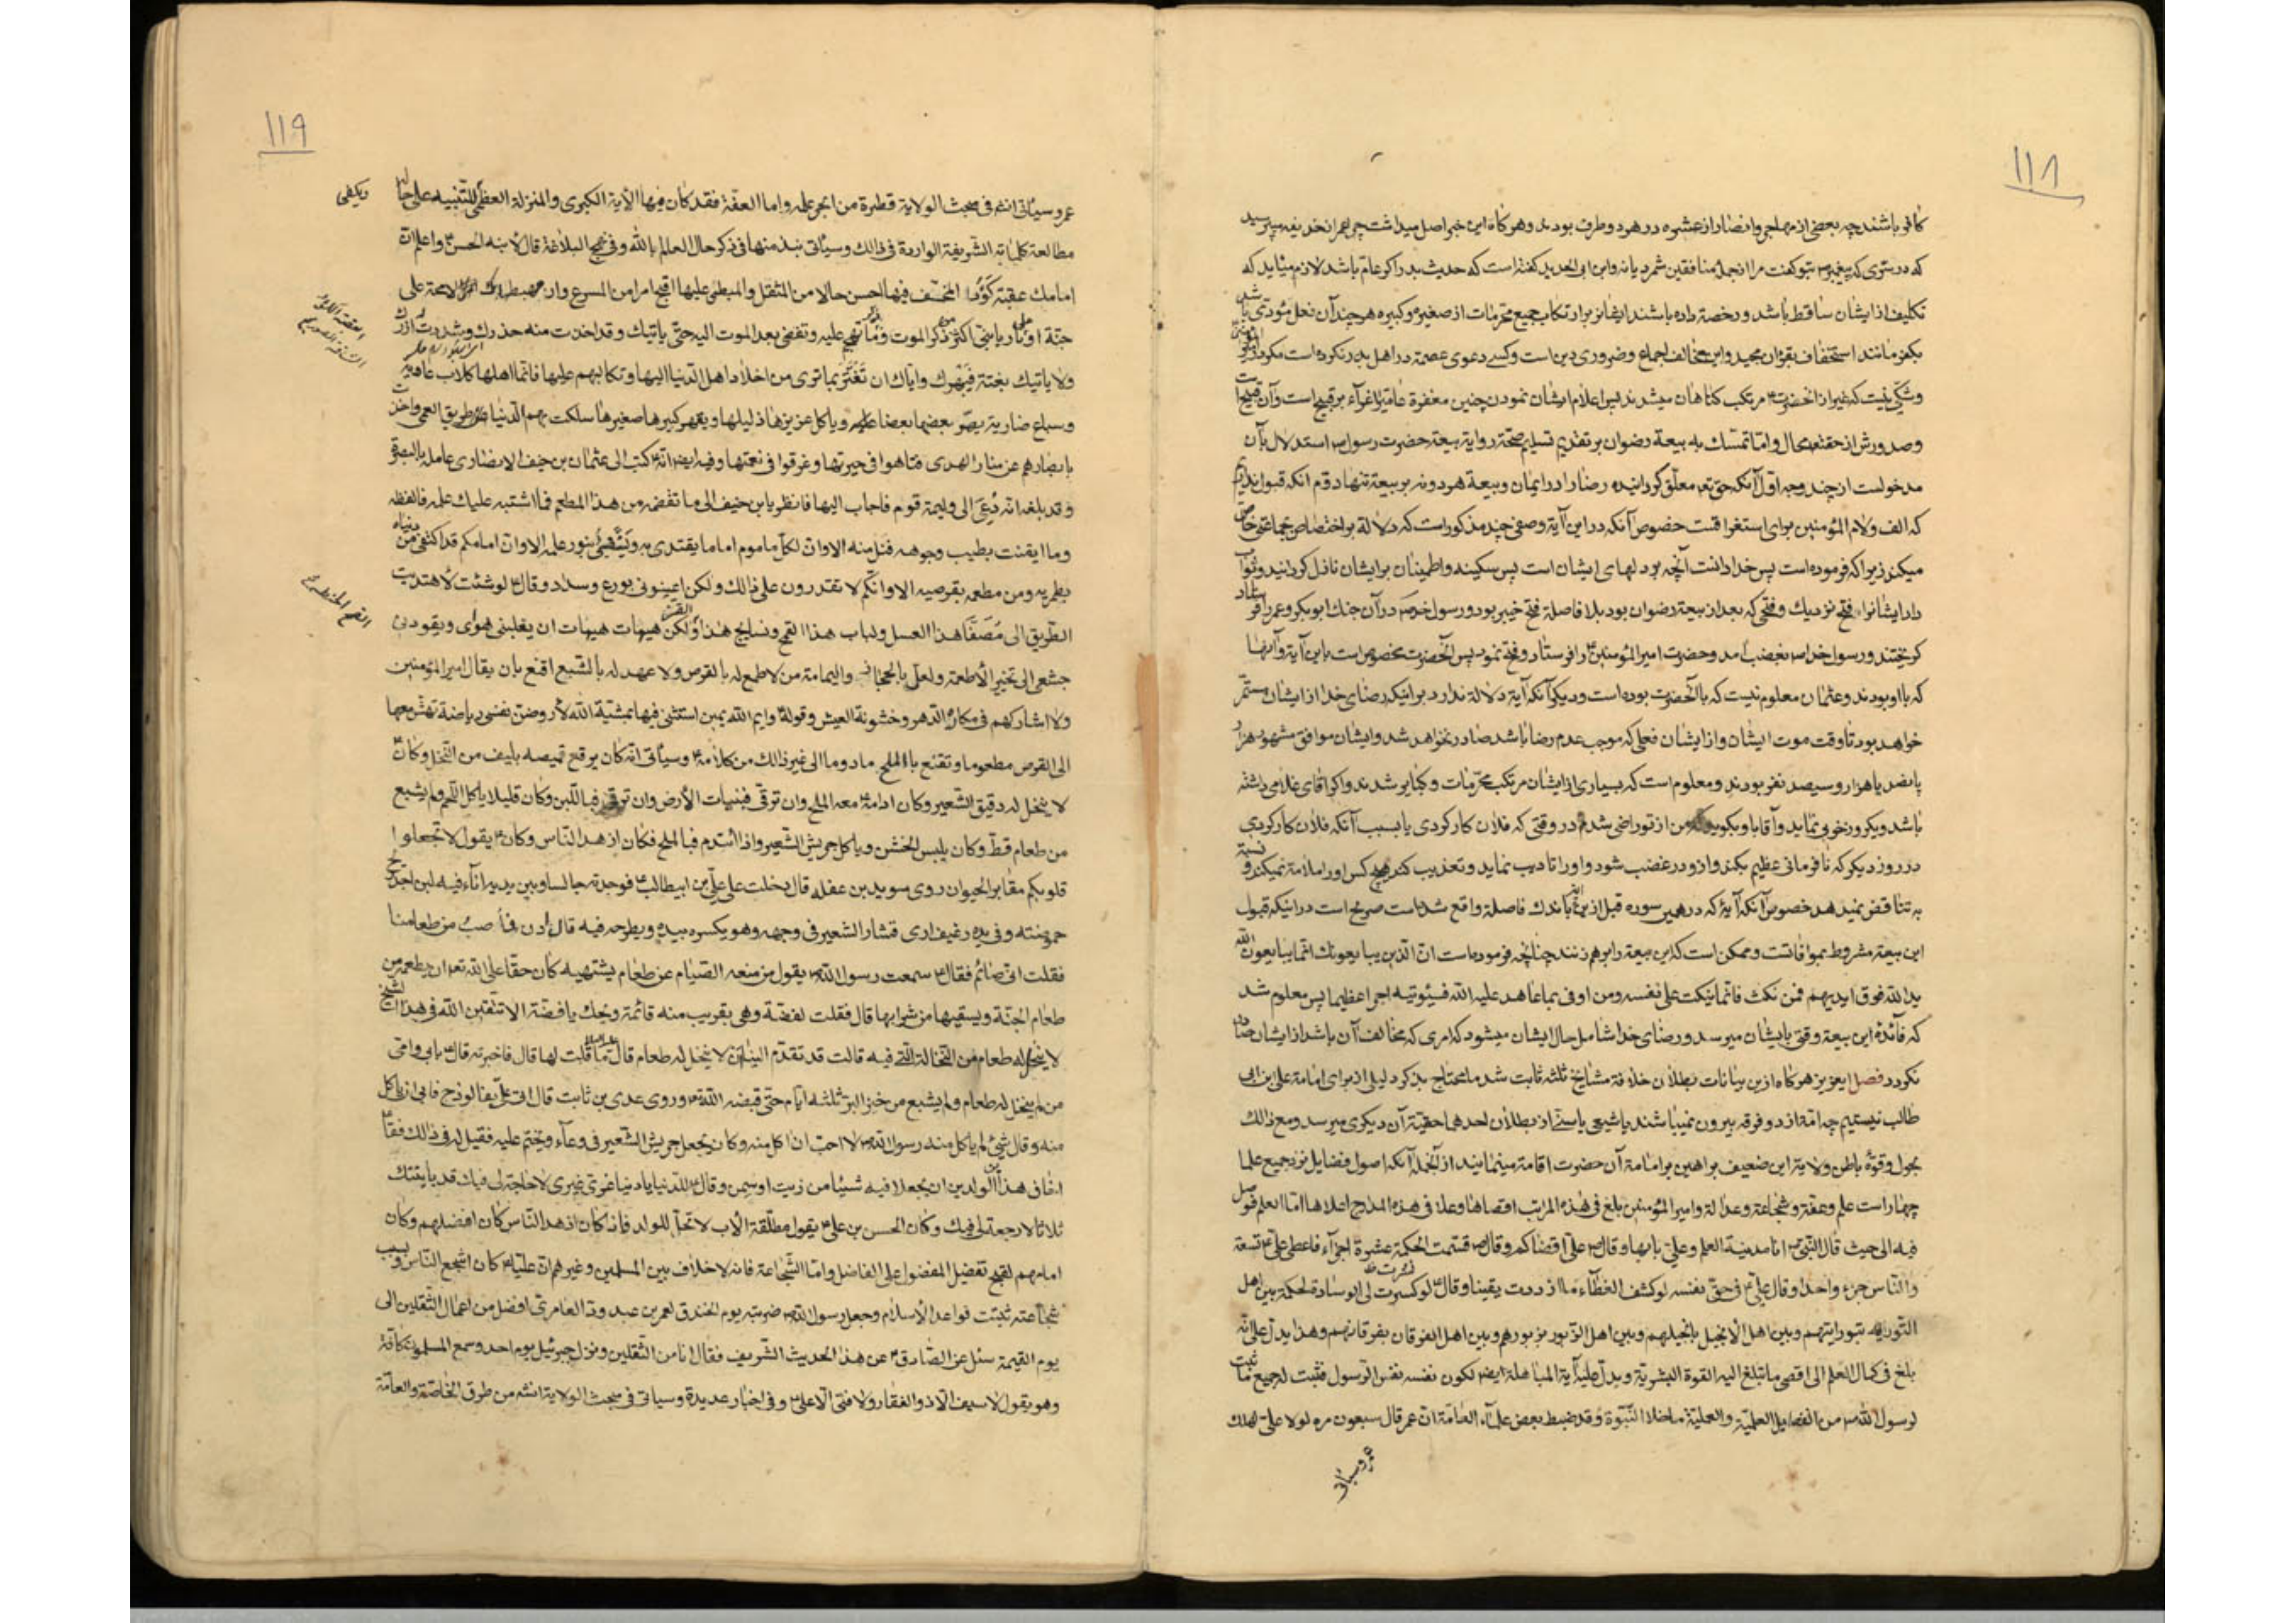 ١١٨
کافر باشند چه بعضی از مهاجر وانصار از عشره در هر دو طرف بودند وهرکاه این خبر اصل میداشت چرا عمر از حذیفه میپرسید
که در ستری که پیغمبر ص بتو کفت مرا از جملهٔ منافقین شمرد یا نه وابن ابی الحدید کفته است که حدیث بدر اکر عام باشد لازم میآید که
تکلیف از ایشان ساقط باشد ورخصة داده باشند ایشانرا برارتکاب جمیع محرمات از صغیره وکبیره هرچند آن فعل مؤدّی باشد
بکفر مانند استخفاف بقرآن مجید واین مخالف اجماع وضروری دین است وکسے دعوی عصمة در اهل بدر نکرده است مکر در
وشکّی نیست که غیر از آنحضرت مرتکب کناهان میشدند پس اعلام ایشان نمودن چنین مغفرة عامّه را اغرآء بر قبیح است وآن قبیح است
وصدورش از حقتعالی محال وامّا تمسّک به بیعة رضوان بر تقدیر تسلیم صحّة روایة بیعة حضرت رسول ص استدلال بآن
مدخولست از چند وجه اوّل آنکه حق تعالی معلّق کردانیده رضا را در ایمان وبیعة هر دو نه بر بیعة تنها دوّم آنکه قبول نداریم
که الف ولام المؤمنین برای استغراقست خصوص آنکه در این آیة وصفی چند مذکور است که دلالة بر اختصاص جماعتی خاص
میکند زیرا که فرموده است پس خدا دانست آنچه بود دلهای ایشان است پس سکینه واطمینان بر ایشان نازل کردانید وثواب
داد ایشانرا فتح نزدیک وفتحی که بعد از بیعة رضوان بود بلا فاصلة فتح خیبر بود ورسول خدا ص در آن جنک ابوبکر وعمر را فرستاد
کریختند ورسول خدا ص بغضب آمد وحضرت امیر المؤمنین را فرستاد وفتح نمود پس آنحضرت مخصوص است باین آیة وآنها
که با او بودند وعثمان معلوم نیست که با آنحضرت بوده است ودیکر آنکه آیة دلالة ندارد بر اینکه رضای خدا از ایشان مستمّر
خواهد بود تا وقت موت ایشان واز ایشان فعلی که موجب عدم رضا باشد صادر نخواهد شد وایشان موافق مشهور هزار
پانصد یا هزار وسیصد نفر بودند ومعلوم است که بسیاری از ایشان مرتکب محرّمات وکبایر شدند واکر آقای غلامی داشته
باشد ویکروز خوبی نماید وآقا باو بکوید که من از تو راضی شدم در وقتی که فلان کار کردی یا بسبب آنکه فلان کار کردی
در روز دیکر که نافرمانی عظیم بکند وازو در غضب شود واو را تادیب نماید وتعذیب کند هیچ کس او را ملامة نمیکند ونسبة
به تناقض نمیدهد خصوص آنکه آیهٔ که در همین سوره قبل از این آیة باندک فاصلة واقع شده است صریح است در اینکه قبول
این بیعة مشروط بموافاتست وممکن است که این بیعة را برهم زنند چنانچه فرموده است انّ الّذین یبایعونک انّما یبایعون اللّه
ید اللّه فوق ایدیهم فمن نکث فانّما ینکث علی نفسه ومن اوفی بما عاهد علیه اللّه فسیؤتیه اجرا عظیما پس معلوم شد
که فائدهٔ این بیعة وقتی بایشان میرسد ورضای خدا شامل حال ایشان میشود که امری که مخالف آن باشد از ایشان صادر
نکردد فصل ایعزیز هرکاه از این بیانات بطلان خلافة مشایخ ثلثه ثابت شد ما محتاج بذکر دلیل از برای امامة علی بن ابی
طالب نیستیم چه امّة از دو فرقه بیرون نمیباشند یا شیعی یا سنّے از بطلان احدهما حقیّة آن دیکری میرسد ومع ذالک
بحول وقوّهٔ باطن ولایة این ضعیف براهین بر امامة آن حضرت اقامة مینماید از آنجمله آنکه اصول فضایل نزد جمیع علما
چهار است علم وعفّة وشجاعة وعدالة وامیر المؤمنین بلغ فی هذه المراتب اقصاها وعلا فی هذه المدارج اعلاها امّا العلم فوصل
فیه الی حیث قال النّبی ص انا مدینة العلم وعلیّ بابها وقال ص علیّ اقضاکم وقال ص قسّمت الحکمة عشرة اجزآء فاعطی علیّ تسعة
والنّاس جزء واحدا وقال علیّ فی حقّ نفسه لو کشف الغطآء ما ازددت یقینا وقال لو کسرت لی الوسادة لحکمت بین اهل
التّوریة بتوریتهم وبین اهل الانجیل بانجیلهم وبین اهل الزّبور بزبورهم وبین اهل الفرقان بفرقانهم وهذا یدلّ علی انّه
بلغ فی کمال العلم الی اقصی ما تبلغ الیه القوة البشریّة ویدلّ علیه آیة المباهلة ایضا لکون نفسه نفس الرّسول فثبت له جمیع ما ثبت
لرسول اللّه ص من الفضایل العلمیّة والعملیّة ما خلا النّبوّة وقد ضبط بعض علمآء العامّة انّ عمر قال سبعون مره لولا علیّ لهلک
عمر وسیأتی
١١٩
عمر وسیأتی انش فی مبحث الولایة قطرة من ابحر علمه وامّا العفّة فقد کان فیها الآیة الکبری والمنزلة العظمی للتّنبیه علی حاله
ویکفی
مطالعة کلماته الشّریفة الواردة فی ذالک وسیأتی نبذ منها فی ذکر حال العلم باللّه وفی نهج البلاغة قال لابنه الحسن واعلم انّ
امامک عقبة کؤدا المخفّف فیها احسن حالا من المثقل والمبطئ علیها اقبح امرا من المسرع وانّ مهبطها بک لا محالة علی
جنّة او علی نار یا بنیّ اکثر من ذکر الموت وذکر ما تهجم علیه وتفضی بعد الموت الیه حتّی یأتیک وقد اخذت منه حذرک وشددت له ازرک
ولا یأتیک بغتة فیبهرک وایّاک ان تغترّ بما تری من اخلاد اهل الدّنیا الیها وتکالبهم علیها فانّما اهلها کلاب عاویة
وسباع ضاریة یهرّ بعضها بعضا ویأکل عزیزها ذلیلها ویقهر کبیرها صغیرها سلکت بهم الدّنیا طریق العمی واخذت
بابصارهم عن منار الهدی فتاهوا فی حیرتها وغرقوا فی نعمتها وفیه ایضا انّه کتب الی عثمان بن حنیف الانصاری عامله بالبصرة
وقد بلغه انّه دُعِیَ الی ولیمة قوم فاجاب الیها فانظر یابن حنیف الی ما تقضمه من هذا المطعم فما اشتبه علیک علمه فالفظه
وما ایقنت بطیب وجوهه فنل منه الا وانّ لکلّ ماموم اماما یقتدی به ویستضیٔ بنور علمه الا وانّ امامکم قد اکتفی من دنیاه
بطمریه ومن مطعمه بقرصیه الا وانّکم لا تقدرون علی ذالک ولکن اعینونی بورع وسداد وقال لو شئت لاهتدیت
الطّریق الی مُصَفّا هذا العسل ولباب هذا القمح ونسایج هذا القز ولکن هیهات هیهات ان یغلبنی هوای ویقودنی
جشعی الی تخیّر الأطعمة ولعلّ بالحجاز والیمامة من لا طمع له بالقرص ولا عهد له بالشّبع اقنع بان یقال امیر المؤمنین
ولا اشارکهم فی مکاره الدّهر وخشونة العیش وقوله وایم اللّه یمین استثنی فیها بمشیّة اللّه لأروضنّ نفسی ریاضة تهشّ معها
الی القرص مطعوما وتقنع بالملح مادوما الی غیر ذالک من کلامه وسیأتی انّه کان یرقع قمیصه بلیف من النّخل وکان
لا ینخل له دقیق الشّعیر وکان ادامه معه الملح وان ترقّی فبنبات الأرض وان ترقّی فباللّبن وکان قلیلا یأکل اللّحم ولم یشبع
من طعام قطّ وکان یلبس الخشن ویأکل جریش الشّعیر واذا ائتدم فبالملح فکان ازهد النّاس وکان یقول لا تجعلوا
قلوبکم مقابر الحیوان روی سوید بن غفلة قال دخلت علی علیّ بن ابیطالب فوجدته جالسا وبین یدیه انآء فیه لبن اجد ریح
حموضته وفی یده رغیف اری قشار الشعیر فی وجهه وهو یکسره بیده ویطرحه فیه قال ادن فأصب من طعامنا
فقلت انّی صائم فقال سمعت رسول اللّه ص یقول من منعه الصّیام عن طعام یشتهیه کان حقّا علی اللّه تعالی ان یطعمه من
طعام الجنّة ویسقیها من شرابها قال فقلت لفضّة وهی بقریب منه قائمة ویحک یا فضّة الا تتّقین اللّه فی هذا الشّیخ
لا ینخل له طعام من النّخالة الّتی فیه قالت قد تقدّم الینا ان لا ینخل له طعام قال ما قلت لها قال فاخبرته قال بابی وامّی
من لم ینخل له طعام ولم یشبع من خبز البرّ ثلثه ایّام حتّی قبضه اللّه وروی عدی بن ثابت قال اتی علیّ بفالوذج فابی ان یأکل
منه وقال شیٔ لم یأکل منه رسول اللّه ص لا احبّ ان اکل منه وکان یجعل جریش الشّعیر فی وعآء ویختم علیه فقیل له فی ذالک فقال
اخاف هذا الولدین ان یجعلا فیه شیئا من زیت او سمن وقال للدّنیا یا دنیا غرّی غیری لا حاجة لی فیک قد باینتک
ثلاثا لا رجعة لی فیک وکان الحسن بن علی یقول مطلّقة الأب لا تحلّ للولد فاذ کان ازهد النّاس کان افضلهم وکان
امامهم لقبح تفضیل المفضول علی الفاضل وامّا الشّجاعة فانه لا خلاف بین المسلمین وغیرهم انّ علیّا کان اشجع النّاس وبسبب
شجاعته ثبتت قواعد الأسلام وجعل رسول اللّه ضربته یوم الخندق لعمر بن عبد ود العامری افضل من اعمال الثّقلین الی
یوم القیمة سئل عن الصّادق عن هذا الحدیث الشّریف فقال انا من الثقلین ونزل جبرئیل یوم احد وسمع المسلمون کافّة
وهو یقول لا سیف الّا ذو الفقار ولا فتی الّا علی وفی اخبار عدیدة وسیاتی فی مبحث الولایة انش من طرق الخاصّة والعامّة